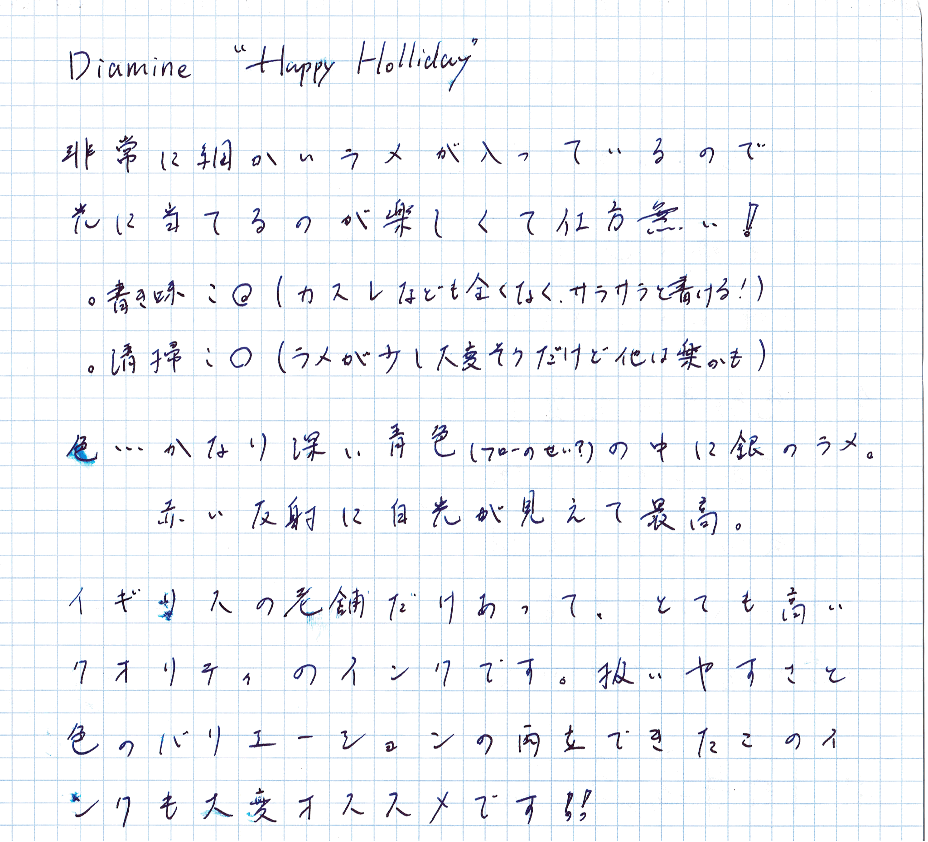 Diamine "Happy Holliday"
非常に細かいラメが入っているので
光に当てるのが楽しくて仕方無い！
。書き味：◎（カスレなども全くなく、サラサラと書ける！）
。清掃：○（ラメが少し大変そうだけど他は楽かも）
色…かなり深い青色（フローのせい？）の中に銀のラメ。
赤い反射に白光が見えて最高。
イギリスの老舗だけあって、とても高い
クオリティのインクです。扱いやすさと
色のバリエーションの両立できたこのイ
ンクも大変オススメです!!